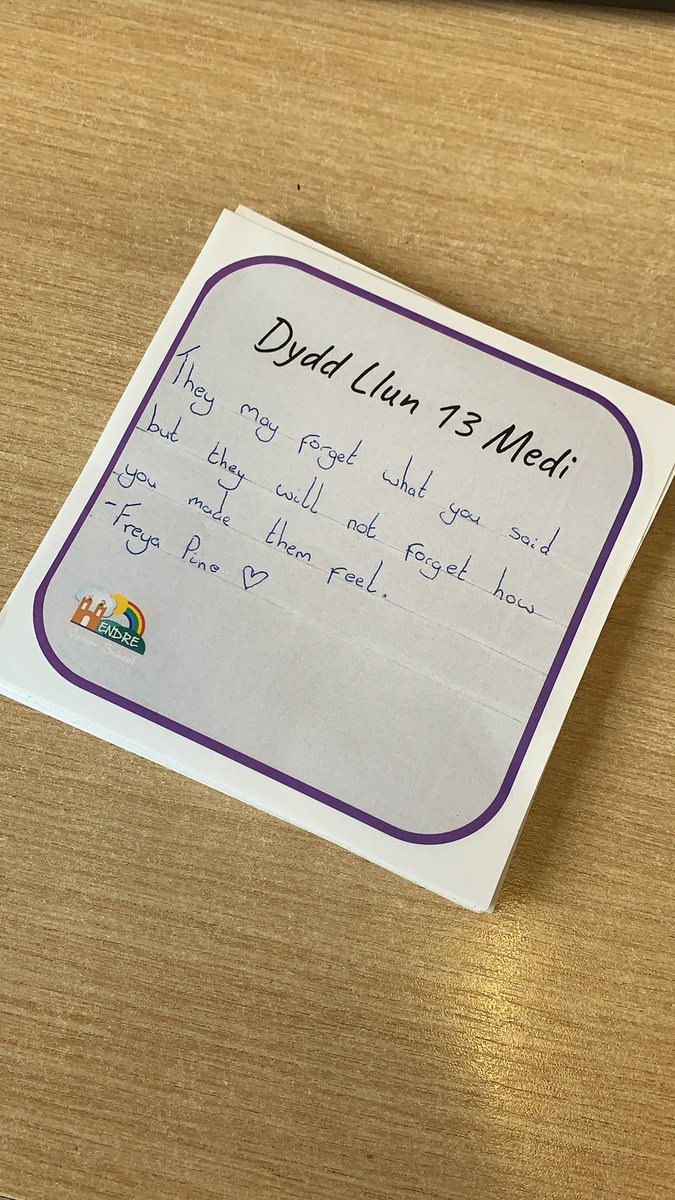 Dydd Llun 13 Medi
They may forget what you said
but they will not forget how
you made them feel.
-Freya Pine ♡
HENDRE
Junior School